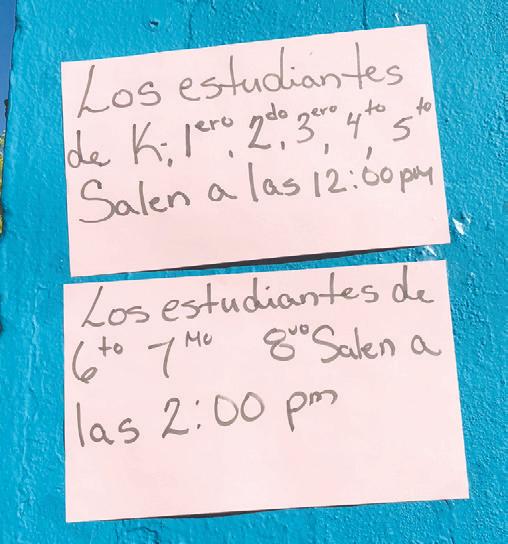 Los estudiantes
de K, 1ero, 2do, 3ero, 4to, 5to
Salen a las 12:00 pm
Los estudiantes de
6to 7Mo 8vo Salen a
las 2:00 pm